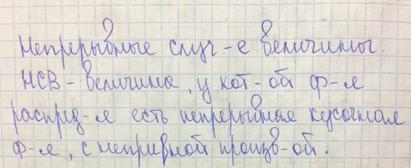 Непрерывные случ-е величины.
НСВ - величина, у кот-ой ф-я
распред-я есть непрерывная кусочная
ф-я, с непривной произв-ой.